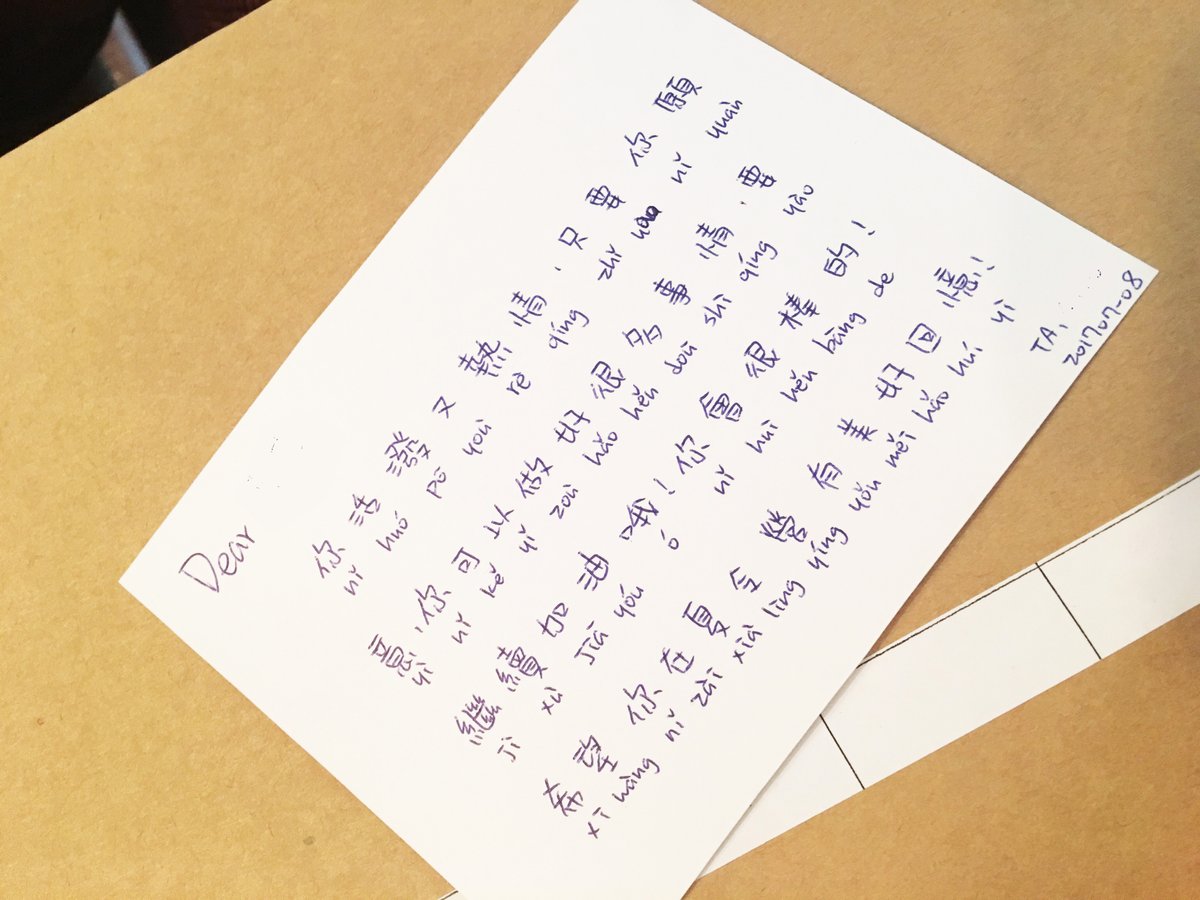 Dear
你活潑又熱情,只要你願
nǐ huó pō yoù rè qíng zhǐ yào nǐ yuàn
意,你可以做好很多事情,要
yì nǐ kě yǐ zoù hǎo hěn doū shì qíng yào
繼續加油哦!你會很棒的!
jì xù jiā yóu ó nǐ huì hěn bàng de
希望你在夏令營有美好回憶!
xī wàng nǐ zài xià lìng yíng yǒu měi hǎo huí yì
TA,
201707-08